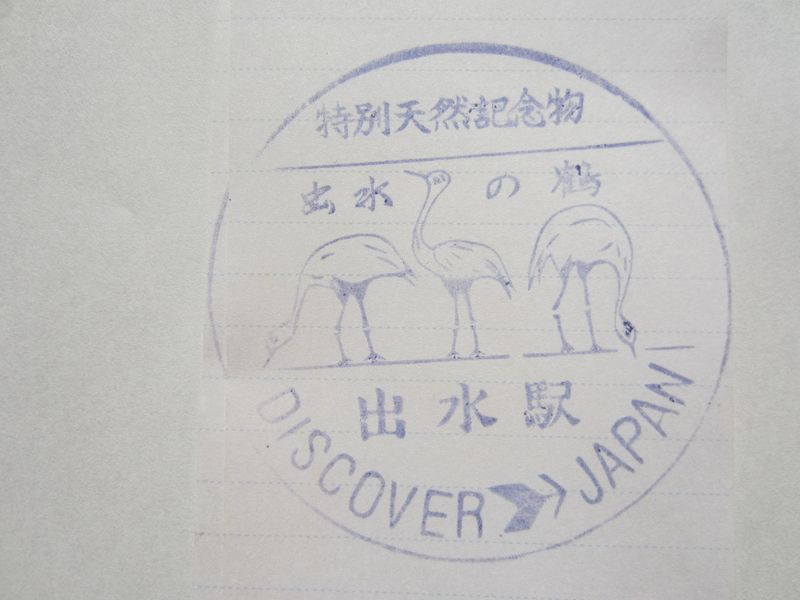 特別天然記念物
出水の鶴
出水駅
DISCOVER JAPAN